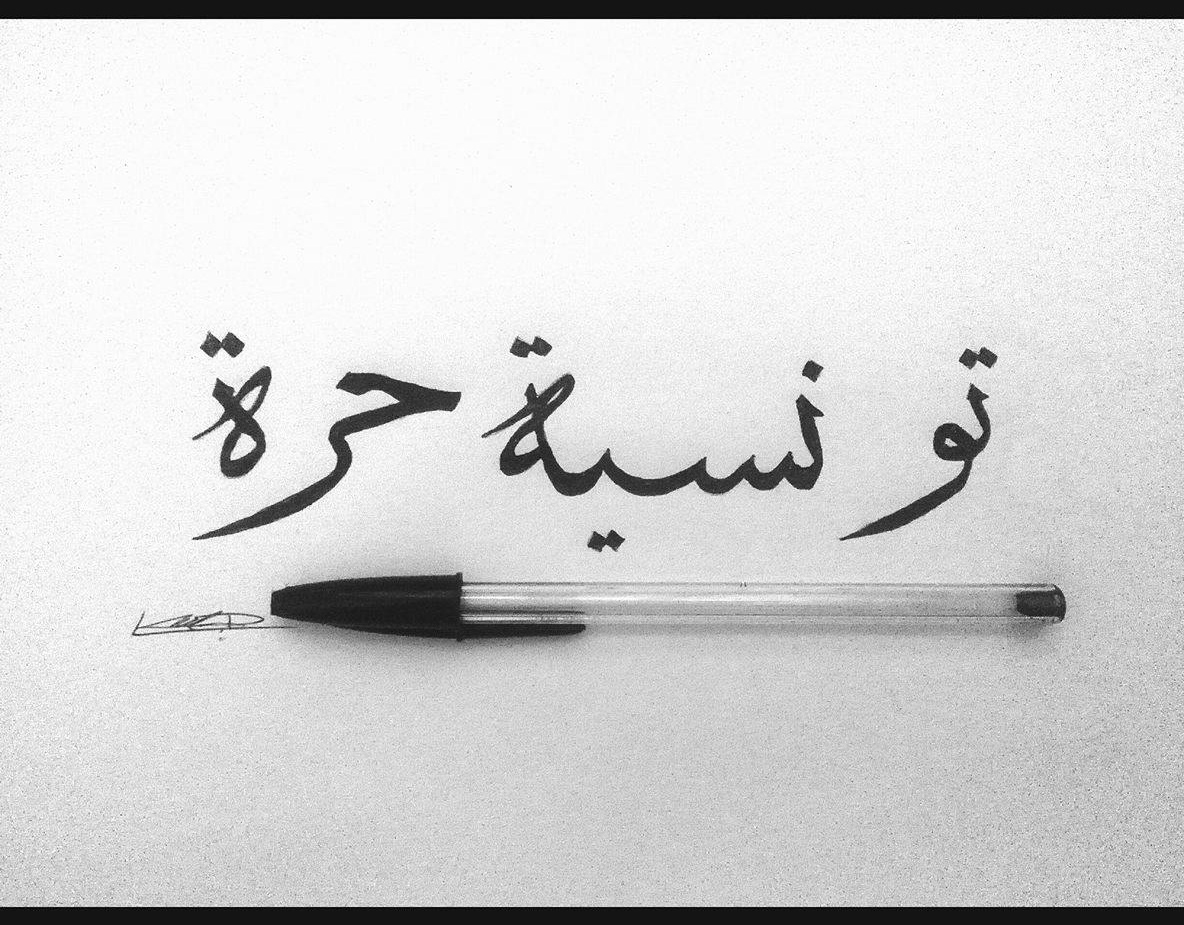 تونسية حرة